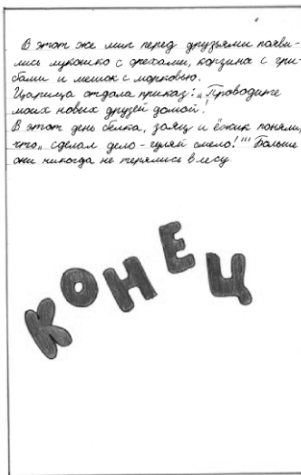 В этот же миг перед друзьями появи-
лись лукошко с орехами, корзина с гри-
бами и мешок с морковью.
Царица отдала приказ: „Проводите
моих новых друзей домой!
В этот день белка, заяц и ёжик поняли,
что „сделал дело - гуляй смело!"" Больше
они никогда не терялись в лесу.
КОНЕЦ